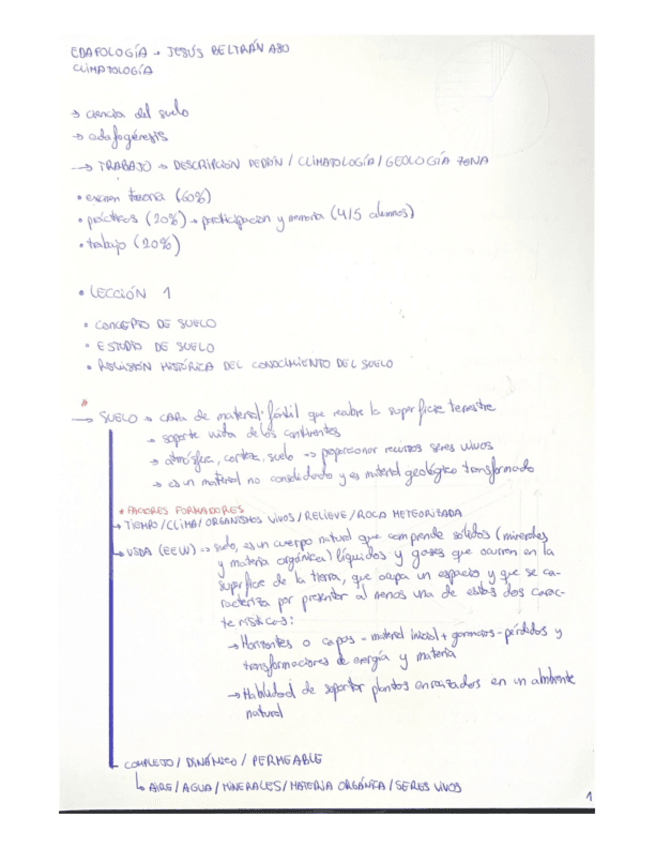 EDAFOLOGÍA → JESÚS BELTRÁN
CLIMATOLOGÍA
→ ciencia del suelo
→ edafogénesis
→ TRABAJO → DESCRIPCIÓN / CLIMATOLOGÍA / GEOLOGÍA ZONA
• examen teoria (60%)
• prácticas (20%) → participacion y memoria (4/5 alumnos)
• trabajo (20%)
• LECCIÓN 1
• CONCEPTO DE SUELO
• ESTUDIO DE SUELO
• REVISIÓN HISTÓRICA DEL CONOCIMIENTO DEL SUELO
→ SUELO → capa de material fértil que recubre la superficie terrestre
→ soporte de los continentes
→ atmósfera, corteza, suelo → proporcionar recursos seres vivos
→ es un material no consolidado y es material geológico transformado
* FACTORES FORMADORES
→ TIEMPO / CLIMA / ORGANISMOS VIVOS / RELIEVE / ROCA METEORIZADA
→ USDA (EEUU) → suelo, es un cuerpo natural que comprende sólidos (minerales
y materia orgánica) líquidos y gases que ocurren en la
superficie de la tierra, que ocupa un espacio y que se ca-
racteriza por presentar al menos una de estas dos carac-
terísticas:
→ Horizontes o capas - material inicial + ganancias - pérdidas y
transformaciones de energía y materia
→ Habilidad de soportar plantas enraizadas en un ambiente
natural
COMPLEJO / DINÁMICO / PERMEABLE
↳ AIRE / AGUA / MINERALES / MATERIA ORGÁNICA / SERES VIVOS
1